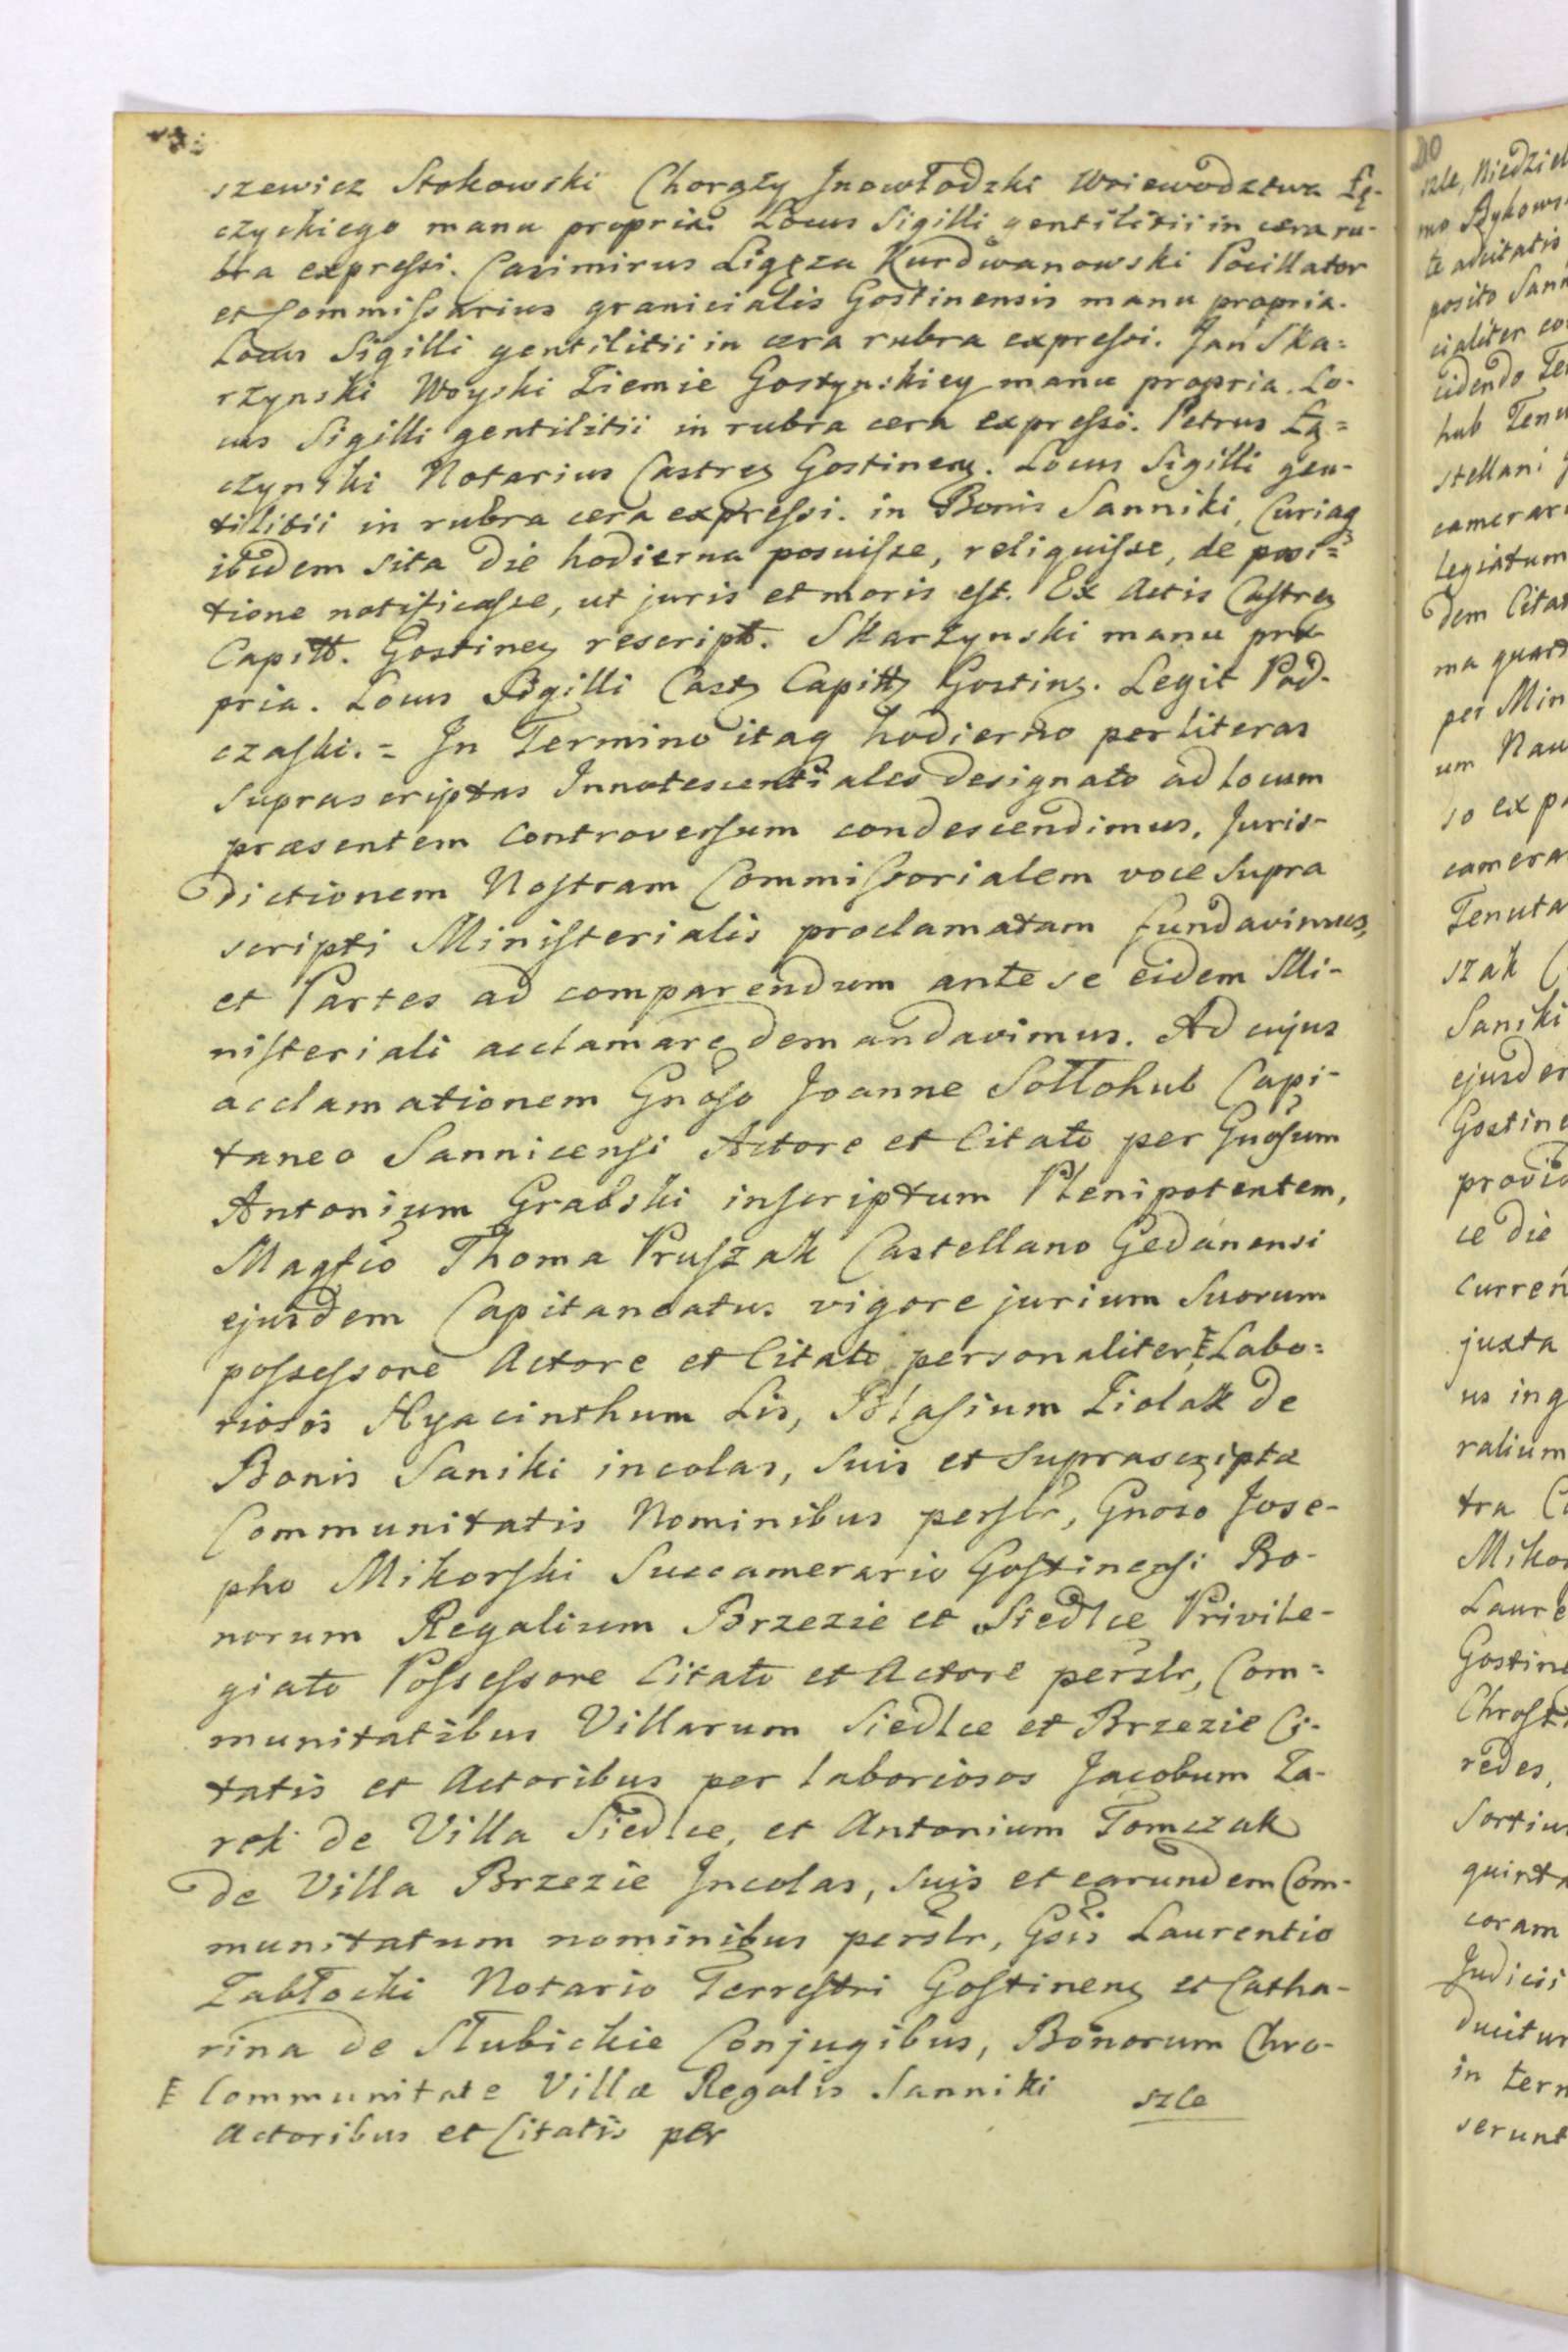 szewicz Stokowski Chorąży Jnowłodzki Woiewodztwa Łę-
czyckiego manu propria. Locus Sigilli gentilitii in cera ru-
bra expressi. Casimirus Ligęza Kurdwanowski Pocillator
et Commissarius granicialis Gostinensis manu propria.
Locus Sigilli gentilitii in cera rubra expressi. Jan Ska=
rżynski Woyski Ziemie Gostynskiey manu propria. Lo-
cus Sigilli gentilitii in rubra cera expressi. Petrus Łą=
czynski Notarius Castren Gostinen. Locus Sigilli gen-
tilitii in rubra cera expressi. in Bonis Sanniki, Curiaq
ibidem sita die hodierna posuisse, reliquisse, de posi=
tione notificasse, ut juris et moris est. Ex Actis Castren
Capitt. Gostinen rescript. Skarżynski manu pro-
pria. Locus Sigilli Castr Capitt Gostin. Legit Pod-
czaski. = Jn Termino itaq hodierno per literas
suprascriptas Innotescentiales designato ad locum
præsentem controversum condescendimus, Juris-
dictionem Nostram Commissorialem voce supra
scripti Ministerialis proclamatam fundavimus,
et Partes ad comparendum ante se eidem Mi-
nisteriali acclamare demandavimus. Ad cujus
acclamationem Gnoso Joanne Sołłohub Capi-
taneo Sannicensi Actore et Citato per Gnosum
Antonium Grabski inscriptum Plenipotentem,
Magfco Thoma Pruszak Castellano Gedanensi
ejusdem Capitaneatus vigore jurium Suorum
possessore Actore et Citato personaliter, E Labo=
riosos Hyacinthum Lis, Blasium Ziolak de
Bonis Saniki incolas, suis et suprascriptæ
Communitatis Nominibus perslr, Gnoso Jose-
pho Mikorski Succamerario Gostinensi Bo-
norum Regalium Brzezie et Siedlce Privile-
giato Possessore Citato et Actore perslr, Com=
munitatibus Villarum Siedlce et Brzezie Ci-
tatis et Actoribus per laboriosos Jacobum Za-
rek de Villa Siedlce, et Antonium Tomczak
de Villa Brzezie Jncolas, suis et earundem Com-
munitatum nominibus perslr, Gsis Laurentio
Zabłocki Notario Terrestri Gostinen et Catha-
rina de Słubickie Conjugibus, Bonorum Chro-
E Communitate Villæ Regalis Sanniki
Actoribus et Citatis per
szle
szle, Niedziel
posito Sann
cialiter co
cidendo Te
hub Tenu
stellani
camerari
legiatum
dem Citat
ma quart
per Min
um Nau
so ex p
camera
Tenuta
szak
Saniki
ejusdem
Gostine
provid
ce die
curren
juxta
us ing
ralium
tra C
Mikor
Laure
Gostine
Chrost
redes,
Sortiu
quinta
coram
Judicii
ducitur
in term
serunt